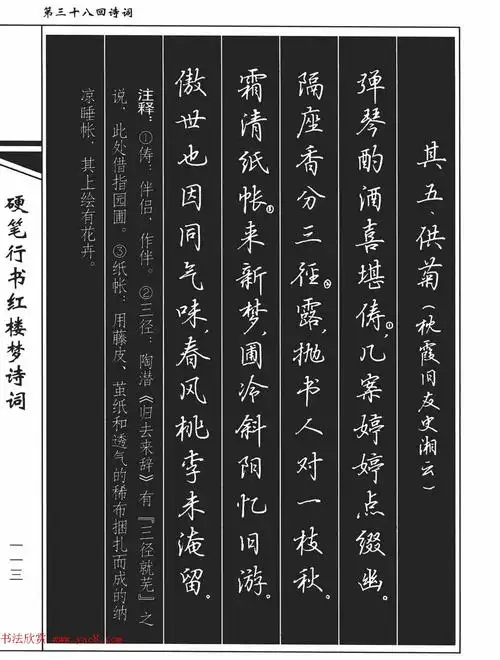 第三十八回诗词
其五、供菊（枕霞旧友史湘云）
弹琴酌酒喜堪俦①，几案婷婷点缀幽。
隔座香分三径②露，抛书人对一枝秋。
霜清纸帐③来新梦，圃冷斜阳忆旧游。
傲世也因同气味，春风桃李未淹留。
注释：①俦：伴侣、作伴。②三径：陶潜《归去来辞》有『三径就芜』之
说，此处借指园圃。③纸帐：用藤皮、茧纸和透气的稀布捆扎而成的纳
凉睡帐，其上绘有花卉。
硬笔行书红楼梦诗词
一一三
书法欣赏 www.yac8.com